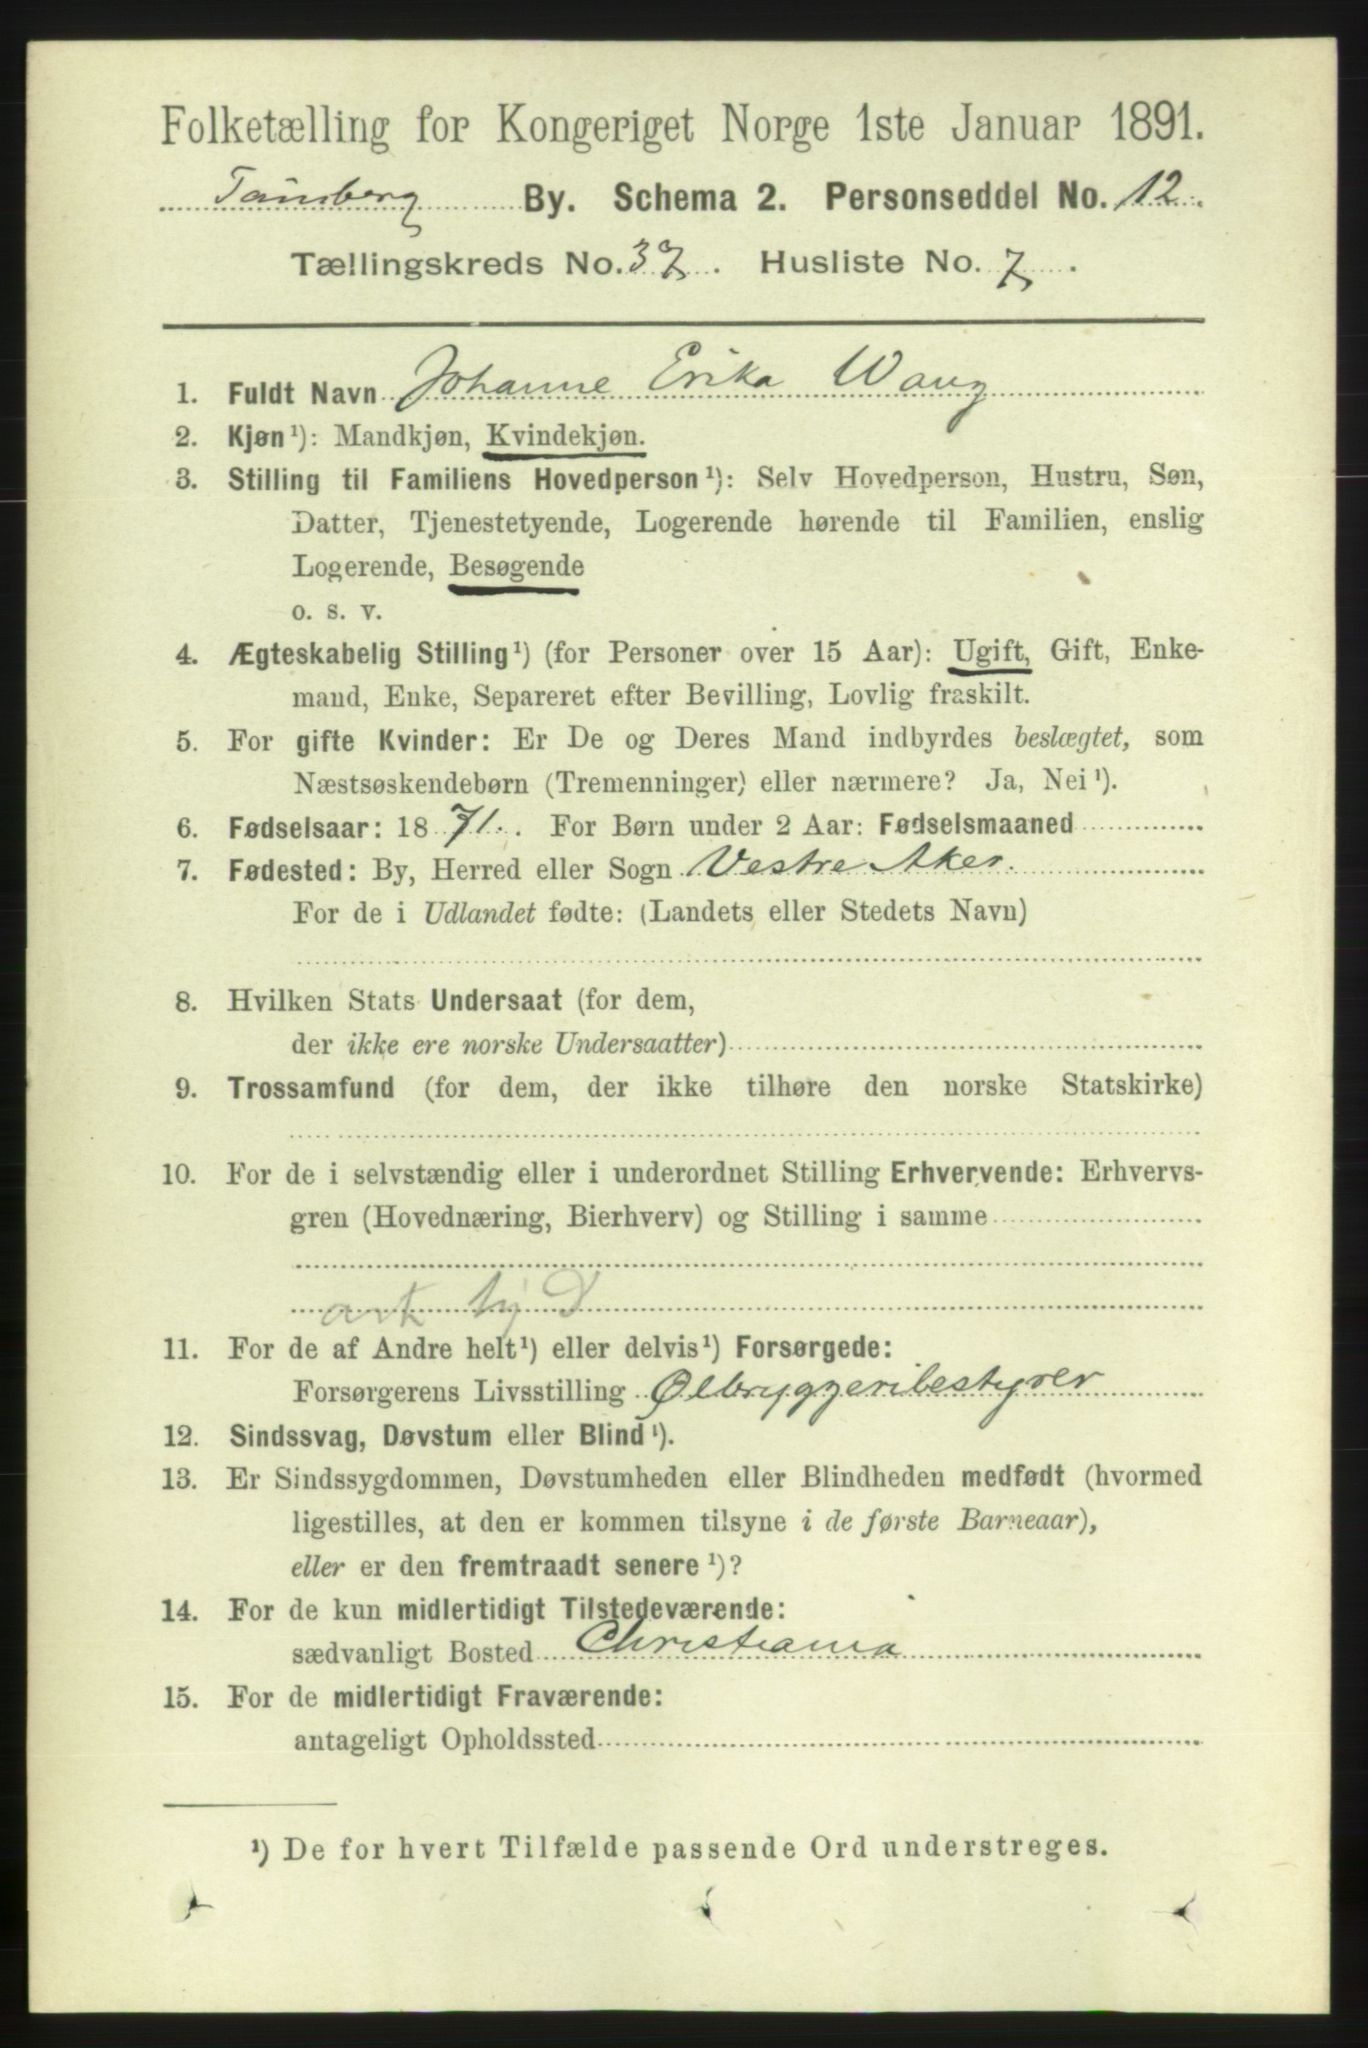 Folketælling for Kongeriget Norge 1ste Januar 1891.
Tønsberg By. Schema 2. Personseddel No. 12.
Tællingskreds No. 37. Husliste No. 7.
1. Fuldt Navn Johanne Erika Wang
2. Kjøn¹): Mandkjøn, Kvindekjøn.
3. Stilling til Familiens Hovedperson¹): Selv Hovedperson, Hustru, Søn,
Datter, Tjenestetyende, Logerende hørende til Familien, enslig
Logerende, Besøgende
o. s. v.
4. Ægteskabelig Stilling¹) (for Personer over 15 Aar): Ugift, Gift, Enke-
mand, Enke, Separeret efter Bevilling, Lovlig fraskilt.
5. For gifte Kvinder: Er De og Deres Mand indbyrdes beslægtet, som
Næstsøskendebørn (Tremenninger) eller nærmere? Ja, Nei¹).
6. Fødselsaar: 1871. For Børn under 2 Aar: Fødselsmaaned
7. Fødested: By, Herred eller Sogn Vestre Aker.
For de i Udlandet fødte: (Landets eller Stedets Navn)
8. Hvilken Stats Undersaat (for dem,
der ikke ere norske Undersaatter)
9. Trossamfund (for dem, der ikke tilhøre den norske Statskirke)
10. For de i selvstændig eller i underordnet Stilling Erhvervende: Erhvervs-
gren (Hovednæring, Bierhverv) og Stilling i samme
11. For de af Andre helt¹) eller delvis¹) Forsørgede:
Forsørgerens Livsstilling Ølbryggeribestyrer
12. Sindssvag, Døvstum eller Blind¹).
13. Er Sindssygdommen, Døvstumheden eller Blindheden medfødt (hvormed
ligestilles, at den er kommen tilsyne i de første Barneaar),
eller er den fremtraadt senere¹)?
14. For de kun midlertidigt Tilstedeværende:
sædvanligt Bosted Christiania
15. For de midlertidigt Fraværende:
antageligt Opholdssted
¹) De for hvert Tilfælde passende Ord understreges.